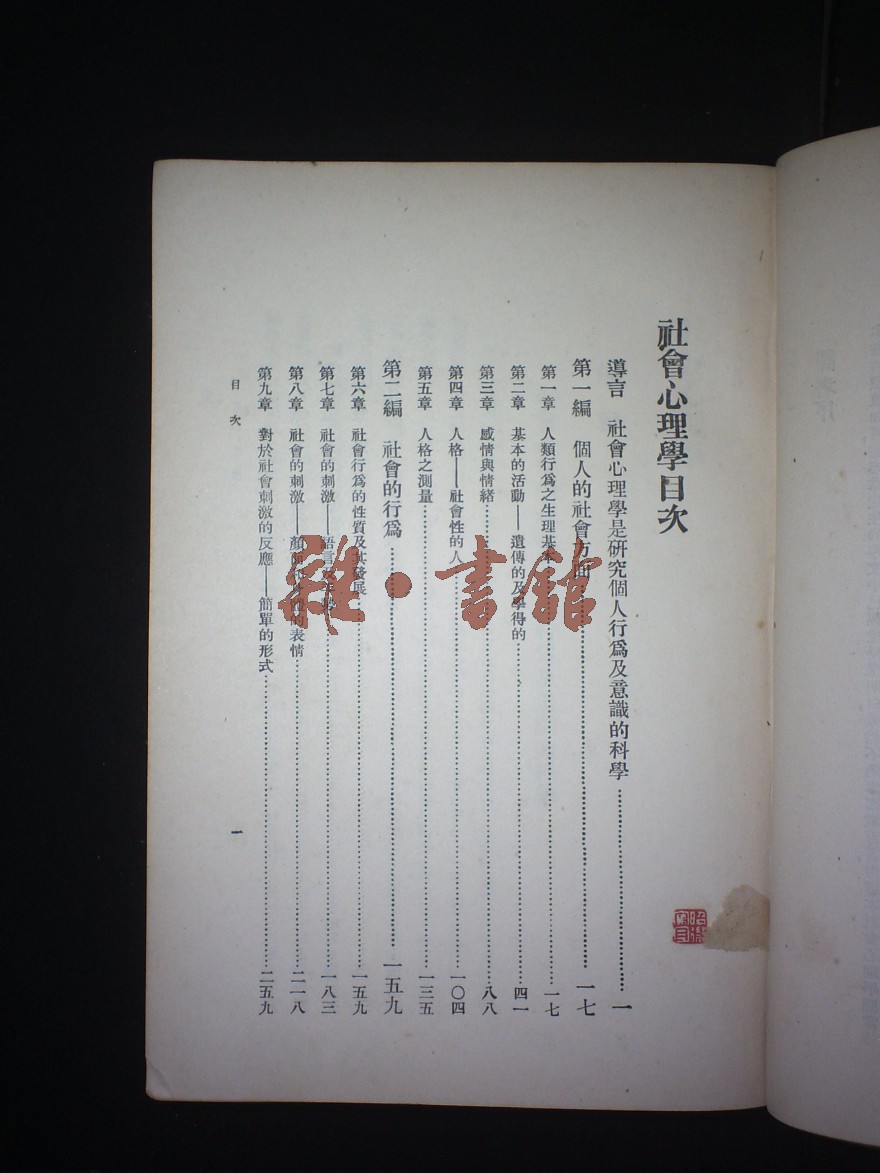 社會心理學目次
導言 社會心理學是研究個人行爲及意識的科學……一
第一編 個人的社會方面……一七
第一章 人類行爲之生理基本……一七
第二章 基本的活動——遺傳的及學得的……四一
第三章 感情與情緒……八八
第四章 人格——社會性的人……一〇四
第五章 人格之測量……一三五
第二編 社會的行爲……一五九
第六章 社會行爲的性質及其發展……一五九
第七章 社會的刺激——語言……一八三
第八章 社會的刺激——顏面的表情……二一八
第九章 對於社會刺激的反應——簡單的形式……二五九
目次
一
雜·書館